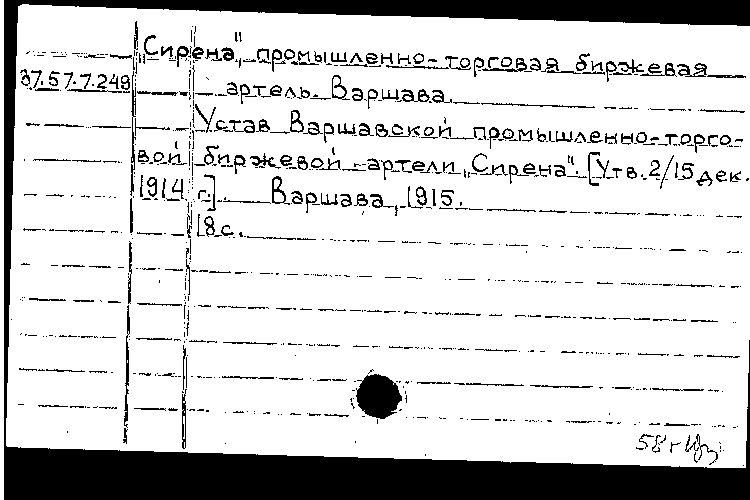 „Сирена", промышленно-торговая биржевая
37.57.7.249
артель. Варшава.
Устав Варшавской промышленно-торго-
вой биржевой артели „Сирена". [Утв. 2/15 дек.
1914 г.]. Варшава, 1915.
18 с.
58 г